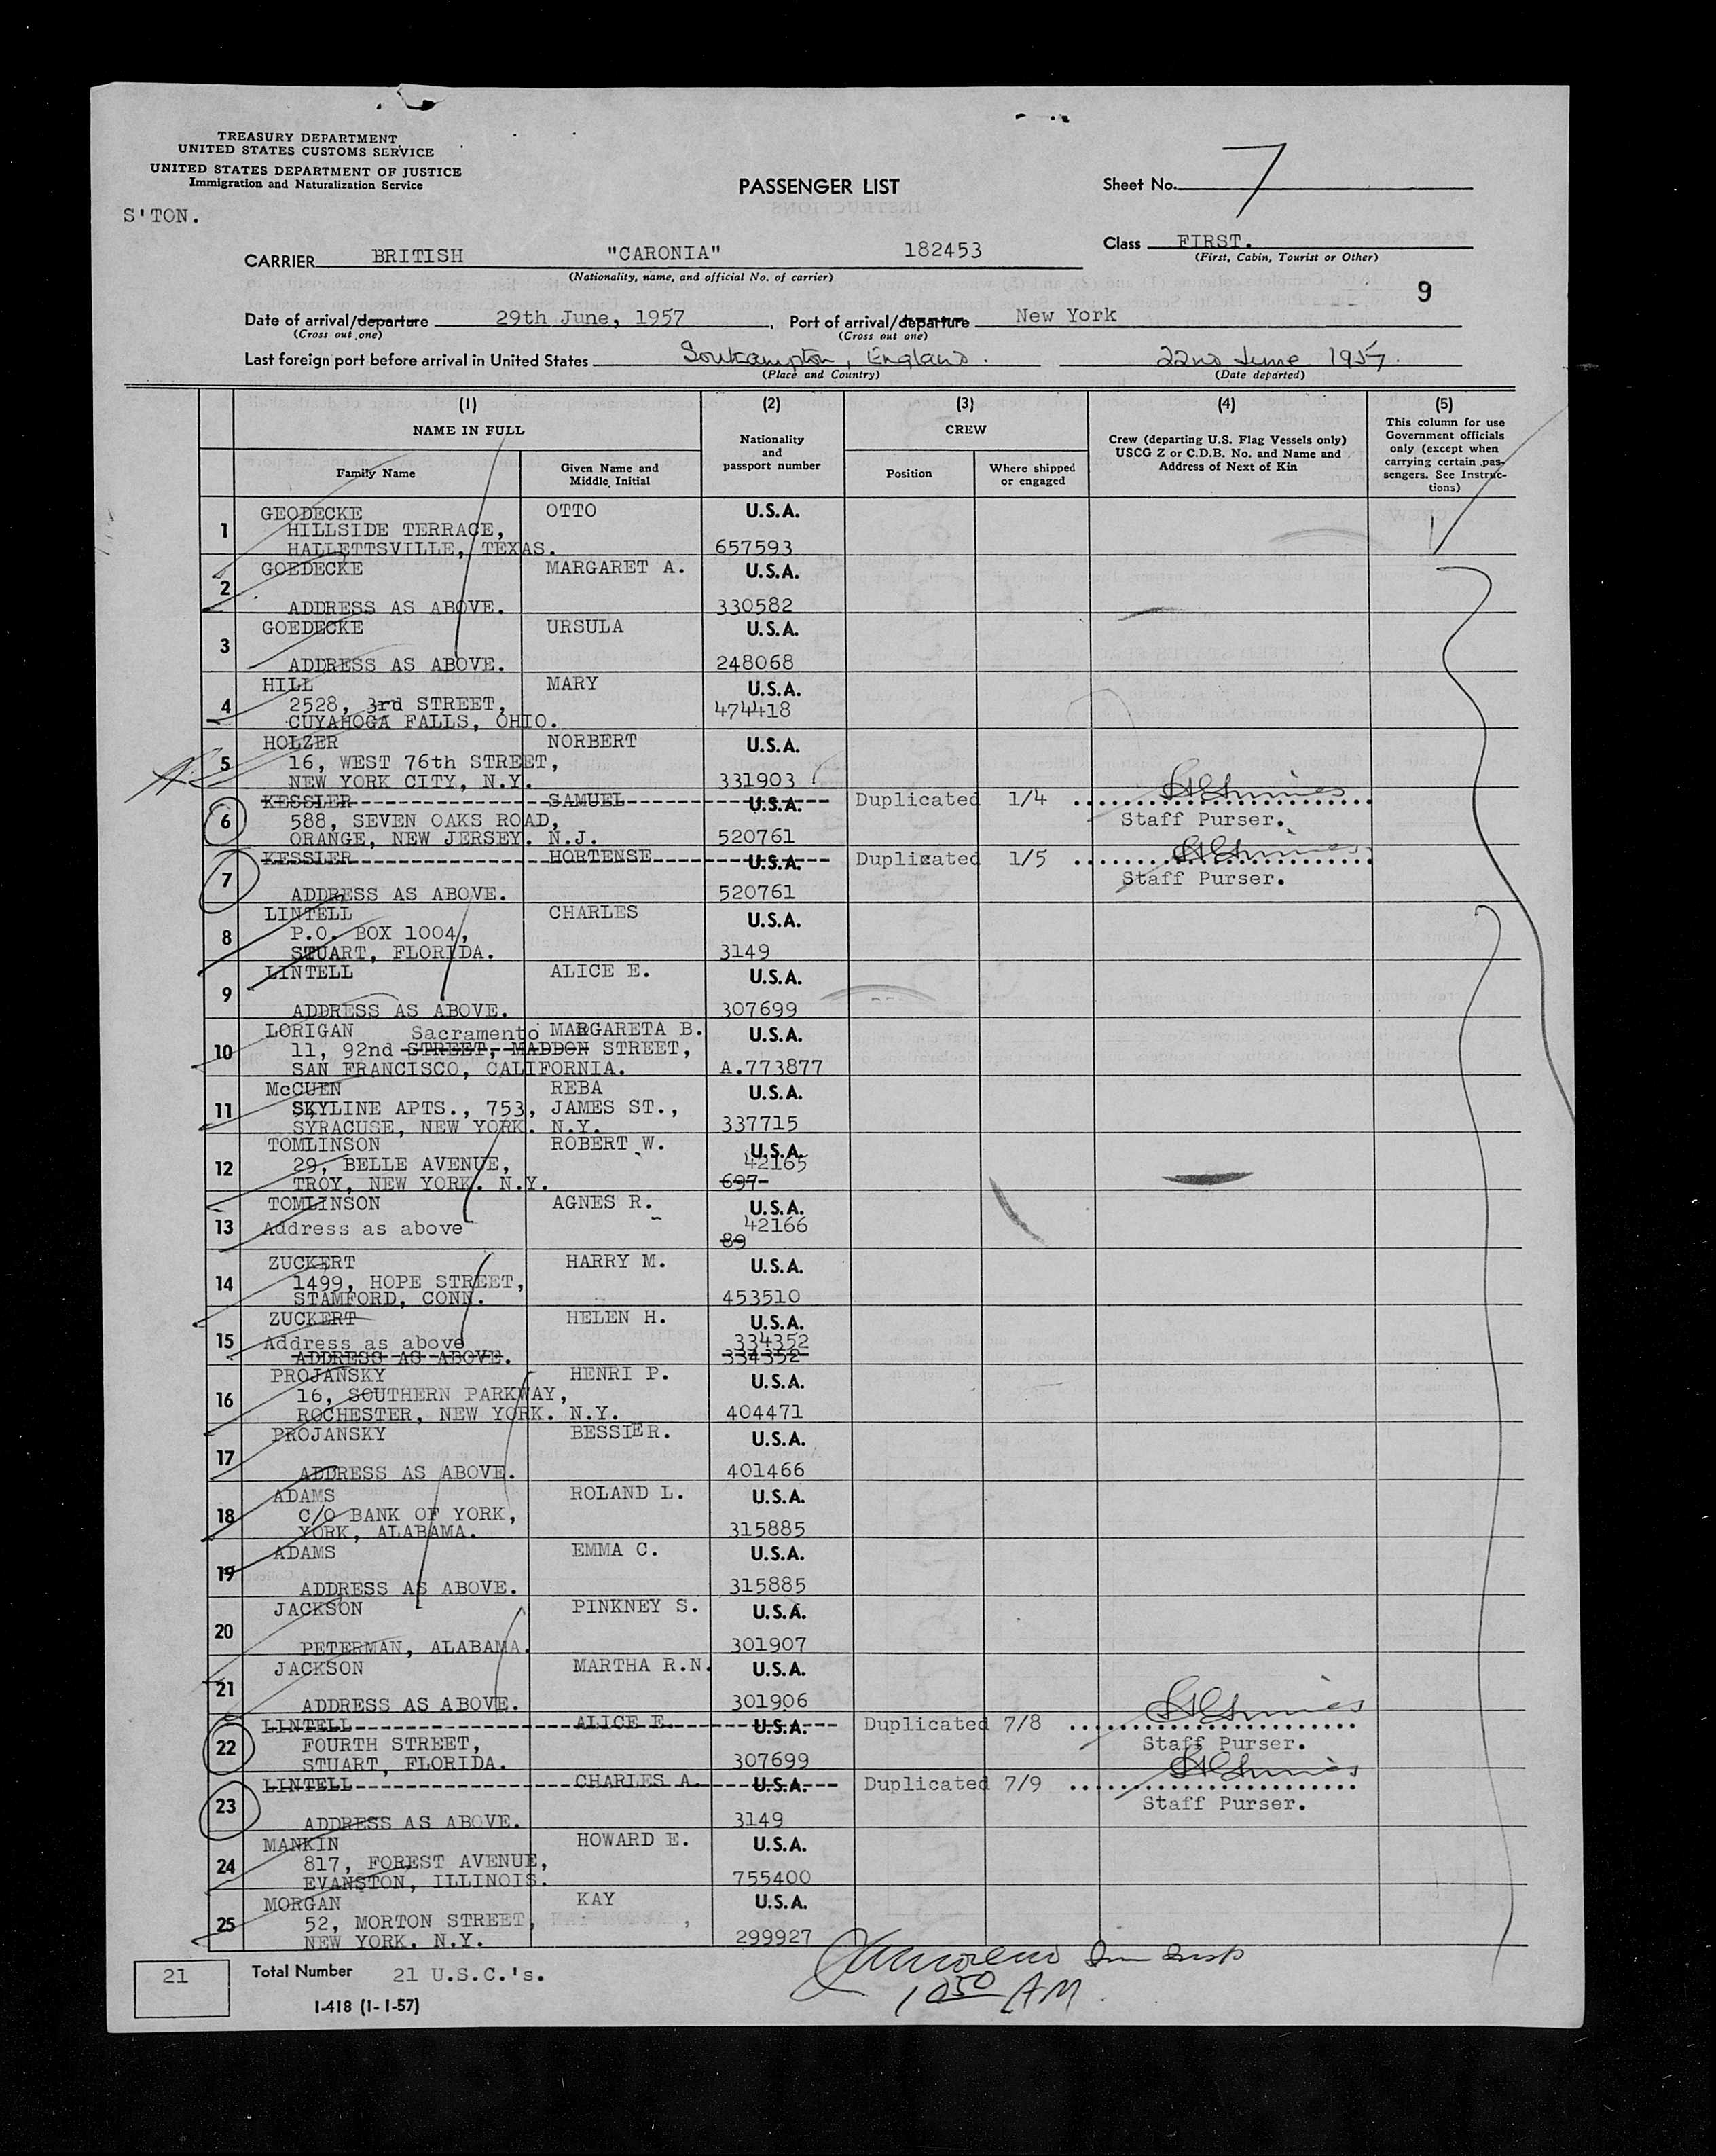 TREASURY DEPARTMENT
UNITED STATES CUSTOMS SERVICE
UNITED STATES DEPARTMENT OF JUSTICE
Immigration and Naturalization Service
PASSENGER LIST
Sheet No. 7
S'TON.
Class FIRST.
(First, Cabin, Tourist or Other)
CARRIER BRITISH "CARONIA" 182453
(Nationality, name, and official No. of carrier)
9
Date of arrival/departure 29th June, 1957, Port of arrival/departure New York
(Cross out one) (Cross out one)
Last foreign port before arrival in United States Southampton, England. 22nd June 1957.
(Place and Country) (Date departed)
(1) (2) (3) (4) (5)
NAME IN FULL
Family Name
Given Name and Middle Initial
Nationality and passport number
CREW
Position
Where shipped or engaged
Crew (departing U.S. Flag Vessels only) USCG Z or C.D.B. No. and Name and Address of Next of Kin
This column for use Government officials only (except when carrying certain passengers. See Instructions)
1 GEODECKE OTTO U.S.A.
HILLSIDE TERRACE,
HALLETTSVILLE, TEXAS. 657593
2 GOEDECKE MARGARET A. U.S.A.
ADDRESS AS ABOVE. 330582
3 GOEDECKE URSULA U.S.A.
ADDRESS AS ABOVE. 248068
4 HILL MARY U.S.A.
2528, 3rd STREET, 474418
CUYAHOGA FALLS, OHIO.
5 HOLZER NORBERT U.S.A.
16, WEST 76th STREET,
NEW YORK CITY, N.Y. 331903
6 KESSLER SAMUEL U.S.A. Duplicated 1/4
588, SEVEN OAKS ROAD, Staff Purser.
ORANGE, NEW JERSEY. N.J. 520761
7 KESSLER HORTENSE U.S.A. Duplicated 1/5
Staff Purser.
ADDRESS AS ABOVE. 520761
8 LINTELL CHARLES U.S.A.
P.O. BOX 1004,
STUART, FLORIDA. 3149
9 LINTELL ALICE E. U.S.A.
ADDRESS AS ABOVE. 307699
10 LORIGAN Sacramento MARGARETA B. U.S.A.
11, 92nd STREET, MADDON STREET,
SAN FRANCISCO, CALIFORNIA. A.773877
11 McCUEN REBA U.S.A.
SKYLINE APTS., 753, JAMES ST.,
SYRACUSE, NEW YORK. N.Y. 337715
12 TOMLINSON ROBERT W. U.S.A.
29, BELLE AVENUE, 42165
TROY, NEW YORK. N.Y. 697
13 TOMLINSON AGNES R. U.S.A.
Address as above 42166
89
14 ZUCKERT HARRY M. U.S.A.
1499, HOPE STREET,
STAMFORD, CONN. 453510
15 ZUCKERT HELEN H. U.S.A.
Address as above 334352
ADDRESS AS ABOVE. 334352
16 PROJANSKY HENRI P. U.S.A.
16, SOUTHERN PARKWAY,
ROCHESTER, NEW YORK. N.Y. 404471
17 PROJANSKY BESSIER. U.S.A.
ADDRESS AS ABOVE. 401466
18 ADAMS ROLAND L. U.S.A.
C/O BANK OF YORK,
YORK, ALABAMA. 315885
19 ADAMS EMMA C. U.S.A.
ADDRESS AS ABOVE. 315885
20 JACKSON PINKNEY S. U.S.A.
PETERMAN, ALABAMA. 301907
21 JACKSON MARTHA R.N. U.S.A.
ADDRESS AS ABOVE. 301906
22 LINTELL ALICE E. U.S.A. Duplicated 7/8
FOURTH STREET, Staff Purser.
STUART, FLORIDA. 307699
23 LINTELL CHARLES A. U.S.A. Duplicated 7/9
Staff Purser.
ADDRESS AS ABOVE. 3149
24 MANKIN HOWARD E. U.S.A.
817, FOREST AVENUE,
EVANSTON, ILLINOIS. 755400
25 MORGAN KAY U.S.A.
52, MORTON STREET,
NEW YORK. N.Y. 299927
21 Total Number 21 U.S.C.'s.
10 50 AM
I-418 (1-1-57)